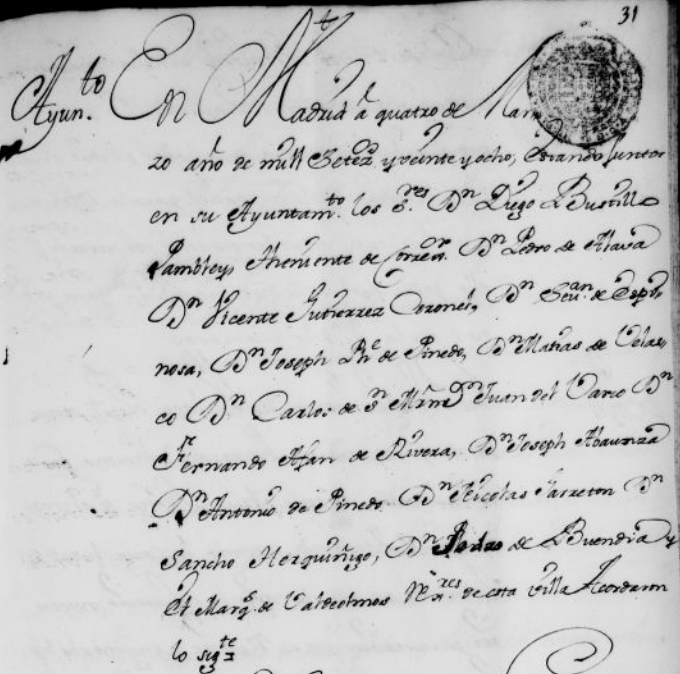 31
Ayun.to En Madrid à quatro de Mar
zo año de mill Setez.os y veinte y ocho, Estando Juntos
en su Ayuntam.to los S.res Dn Diego Bustillo
Pambley, Theniente de Corre.or Dn Pedro de Alava
Dn Vicente Gutierrez Coronel, Dn Seu.an de Espi
nosa, Dn Joseph Ph.e de Pinedo, Dn Matias de Velas
co Dn Carlos de Sn Mrn Dn Juan del Varco Dn
Fernando Afan de Rivera, Dn Joseph Abaunza
Dn Antonio de Pinedo Dn Nicolas Jarreton Dn
Sancho Herquiñigo, Dn de Buendia y
El Marq.s de Valdeolmos de esta villa Acordaron
lo sig.te